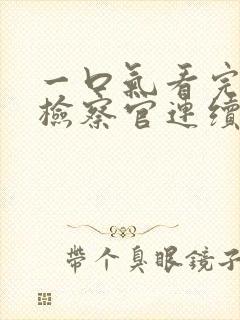 一口氣看完
檢察官連續
帶个臭眼鏡子